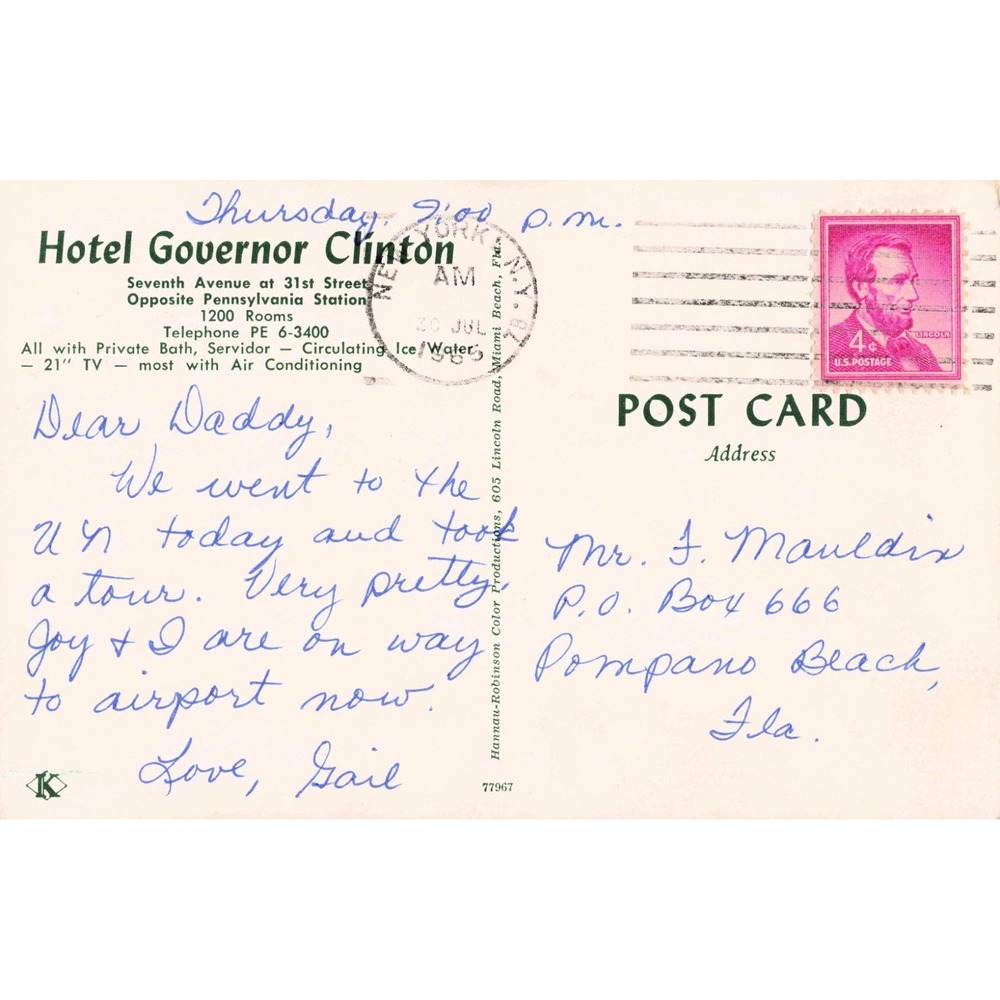 Thursday, 9:00 p.m.
Hotel Governor Clinton
Seventh Avenue at 31st Street
Opposite Pennsylvania Station
1200 Rooms
Telephone PE 6-3400
All with Private Bath, Servidor — Circulating Ice Water
— 21" TV — most with Air Conditioning
NEW YORK, N.Y.
AM
30 JUL
1965
LINCOLN
4¢
U.S. POSTAGE
Dear Daddy,
We went to the
UN today and took
a tour. Very pretty.
Joy & I are on way
to airport now.
Love, Gail
K
Hannau-Robinson Color Productions, 605 Lincoln Road, Miami Beach, Fla.
77967
POST CARD
Address
Mr. F. Mauldin
P.O. Box 666
Pompano Beach,
Fla.